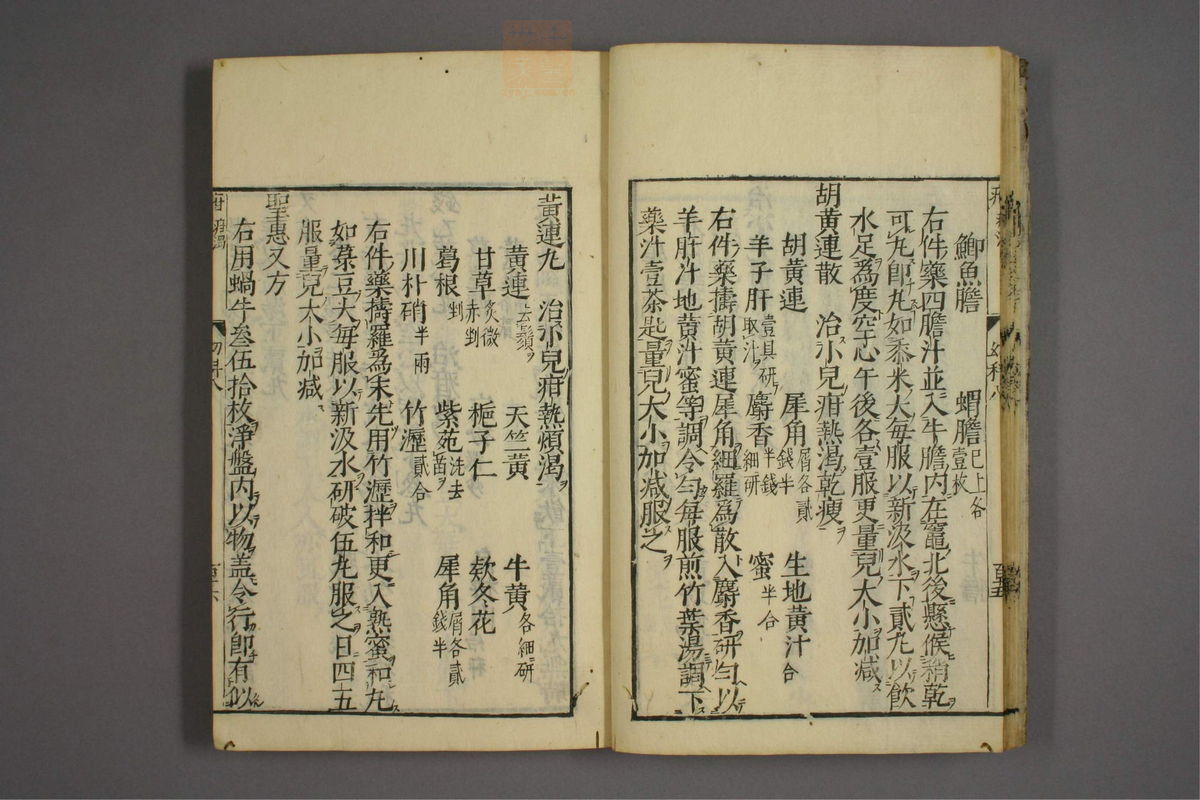 鯽魚膽　蝟膽已上各壹枚
右件藥四膽汁並入牛膽内在竈北後懸候稍乾
可丸即丸如黍米大每服以新汲水下貳丸以飲
水足爲度空心午後各壹服更量兒大小加減
胡黄連散　治小兒疳熱渴乾瘦
胡黄連　犀角屑各貳錢半　生地黄汁合
羊子肝壹具研取汁　麝香半錢細研　蜜半合
右件藥擣胡黄連犀角細羅爲散入麝香研勻以
羊肝汁地黄汁蜜等調令勻每服煎竹葉湯調下
藥汁壹茶匙量兒大小加減服之
黄連丸　治小兒疳熱煩渴
黄連去鬚　天竺黄　牛黄各細研
甘草炙微赤剉　梔子仁　欵冬花
葛根剉　紫苑洗去苗　犀角屑各貳錢半
川朴硝半兩　竹瀝貳合
右件藥擣羅爲末先用竹瀝拌和更入熟蜜和丸
如菉豆大每服以新汲水研破伍丸服之日四五
服量兒大小加減
聖惠又方
右用蝸牛叁伍拾枚淨盤内以物盖令行即有似